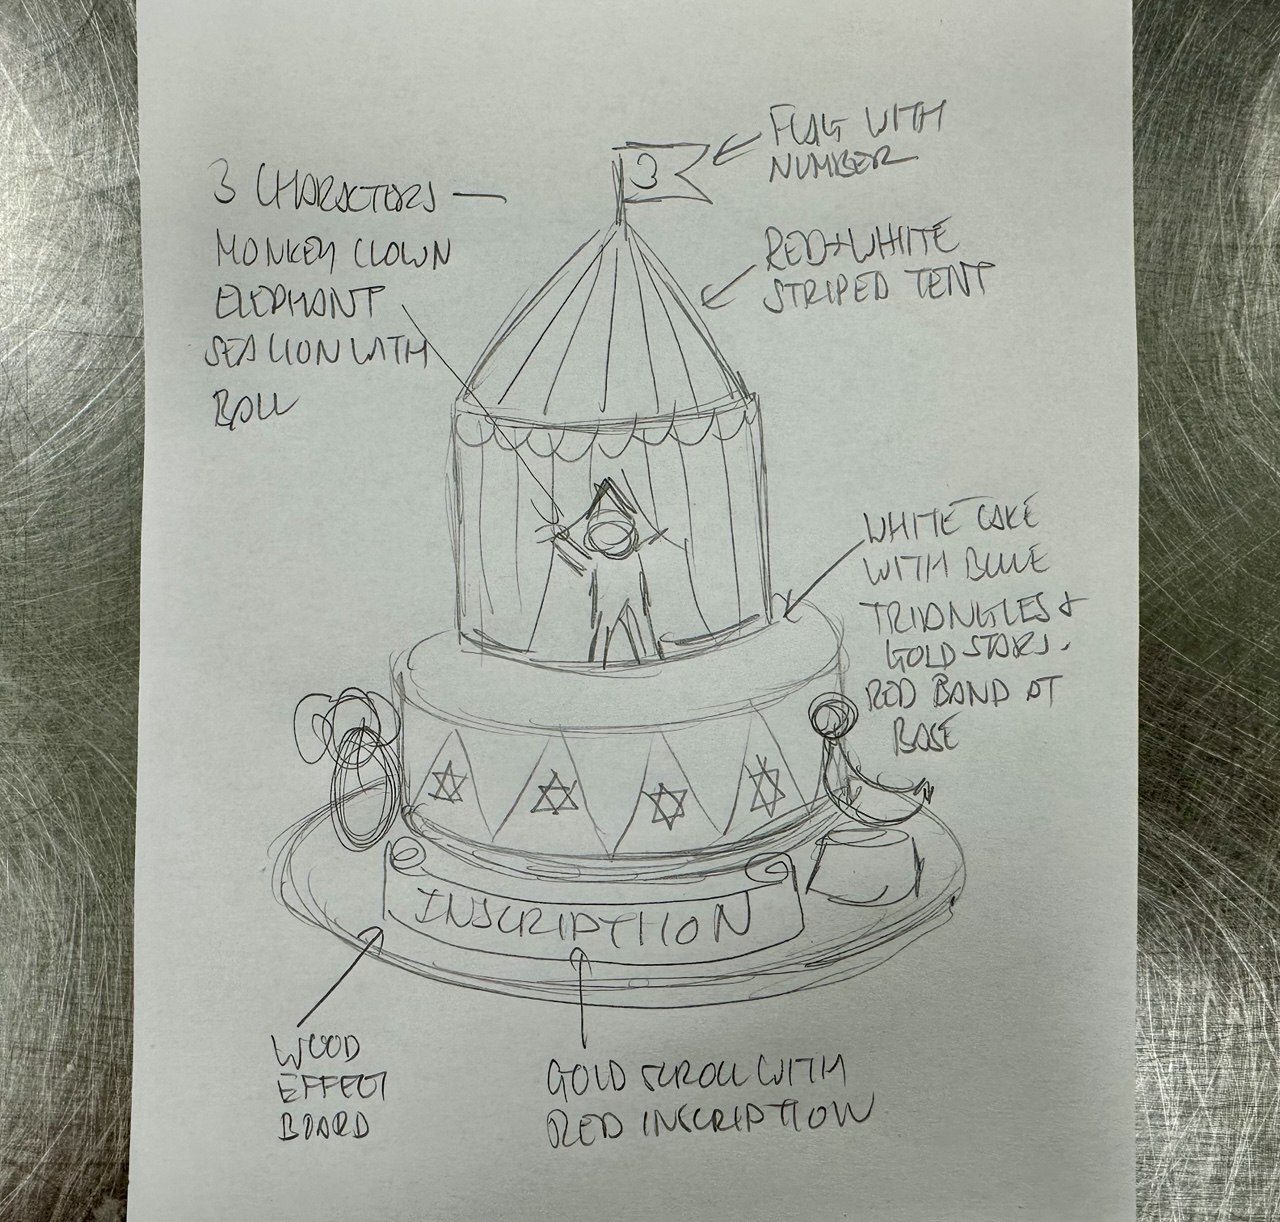 3
FLAG WITH
NUMBER
3 CHARACTORS
MONKEY CLOWN
ELEPHANT
SEA LION WITH
BALL
RED + WHITE
STRIPED TENT
WHITE CAKE
WITH BLUE
TRIANGLES +
GOLD STARS.
RED BAND AT
BASE
INSCRIPTION
WOOD
EFFECT
BOARD
GOLD SCROLL WITH
RED INSCRIPTION